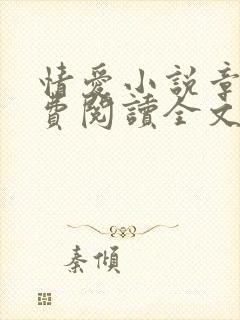 情愛小說章
費閱讀全文
秦傾